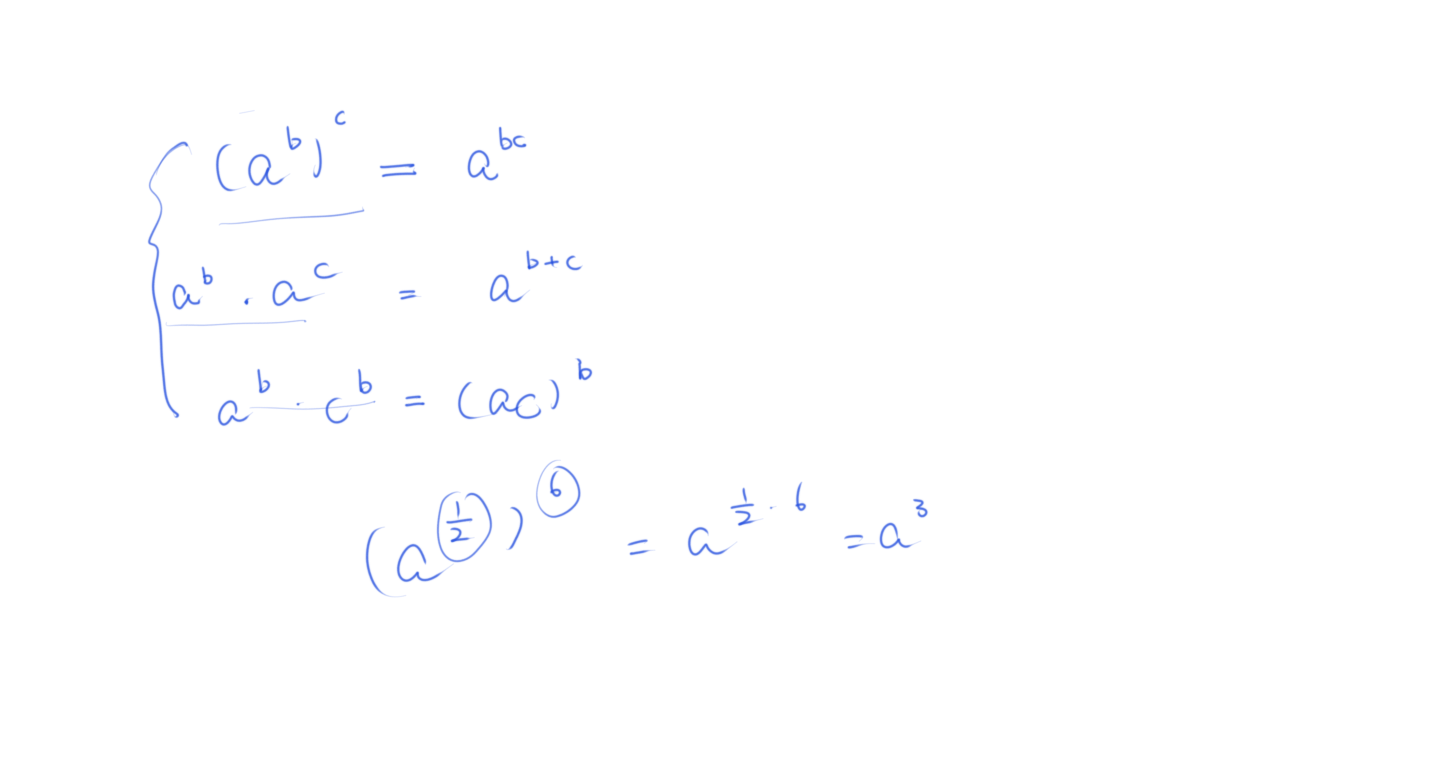 (a^b)^c = a^{bc}
a^b · a^c = a^{b+c}
a^b · c^b = (ac)^b
(a^{1/2})^6 = a^{1/2 · 6} = a^3